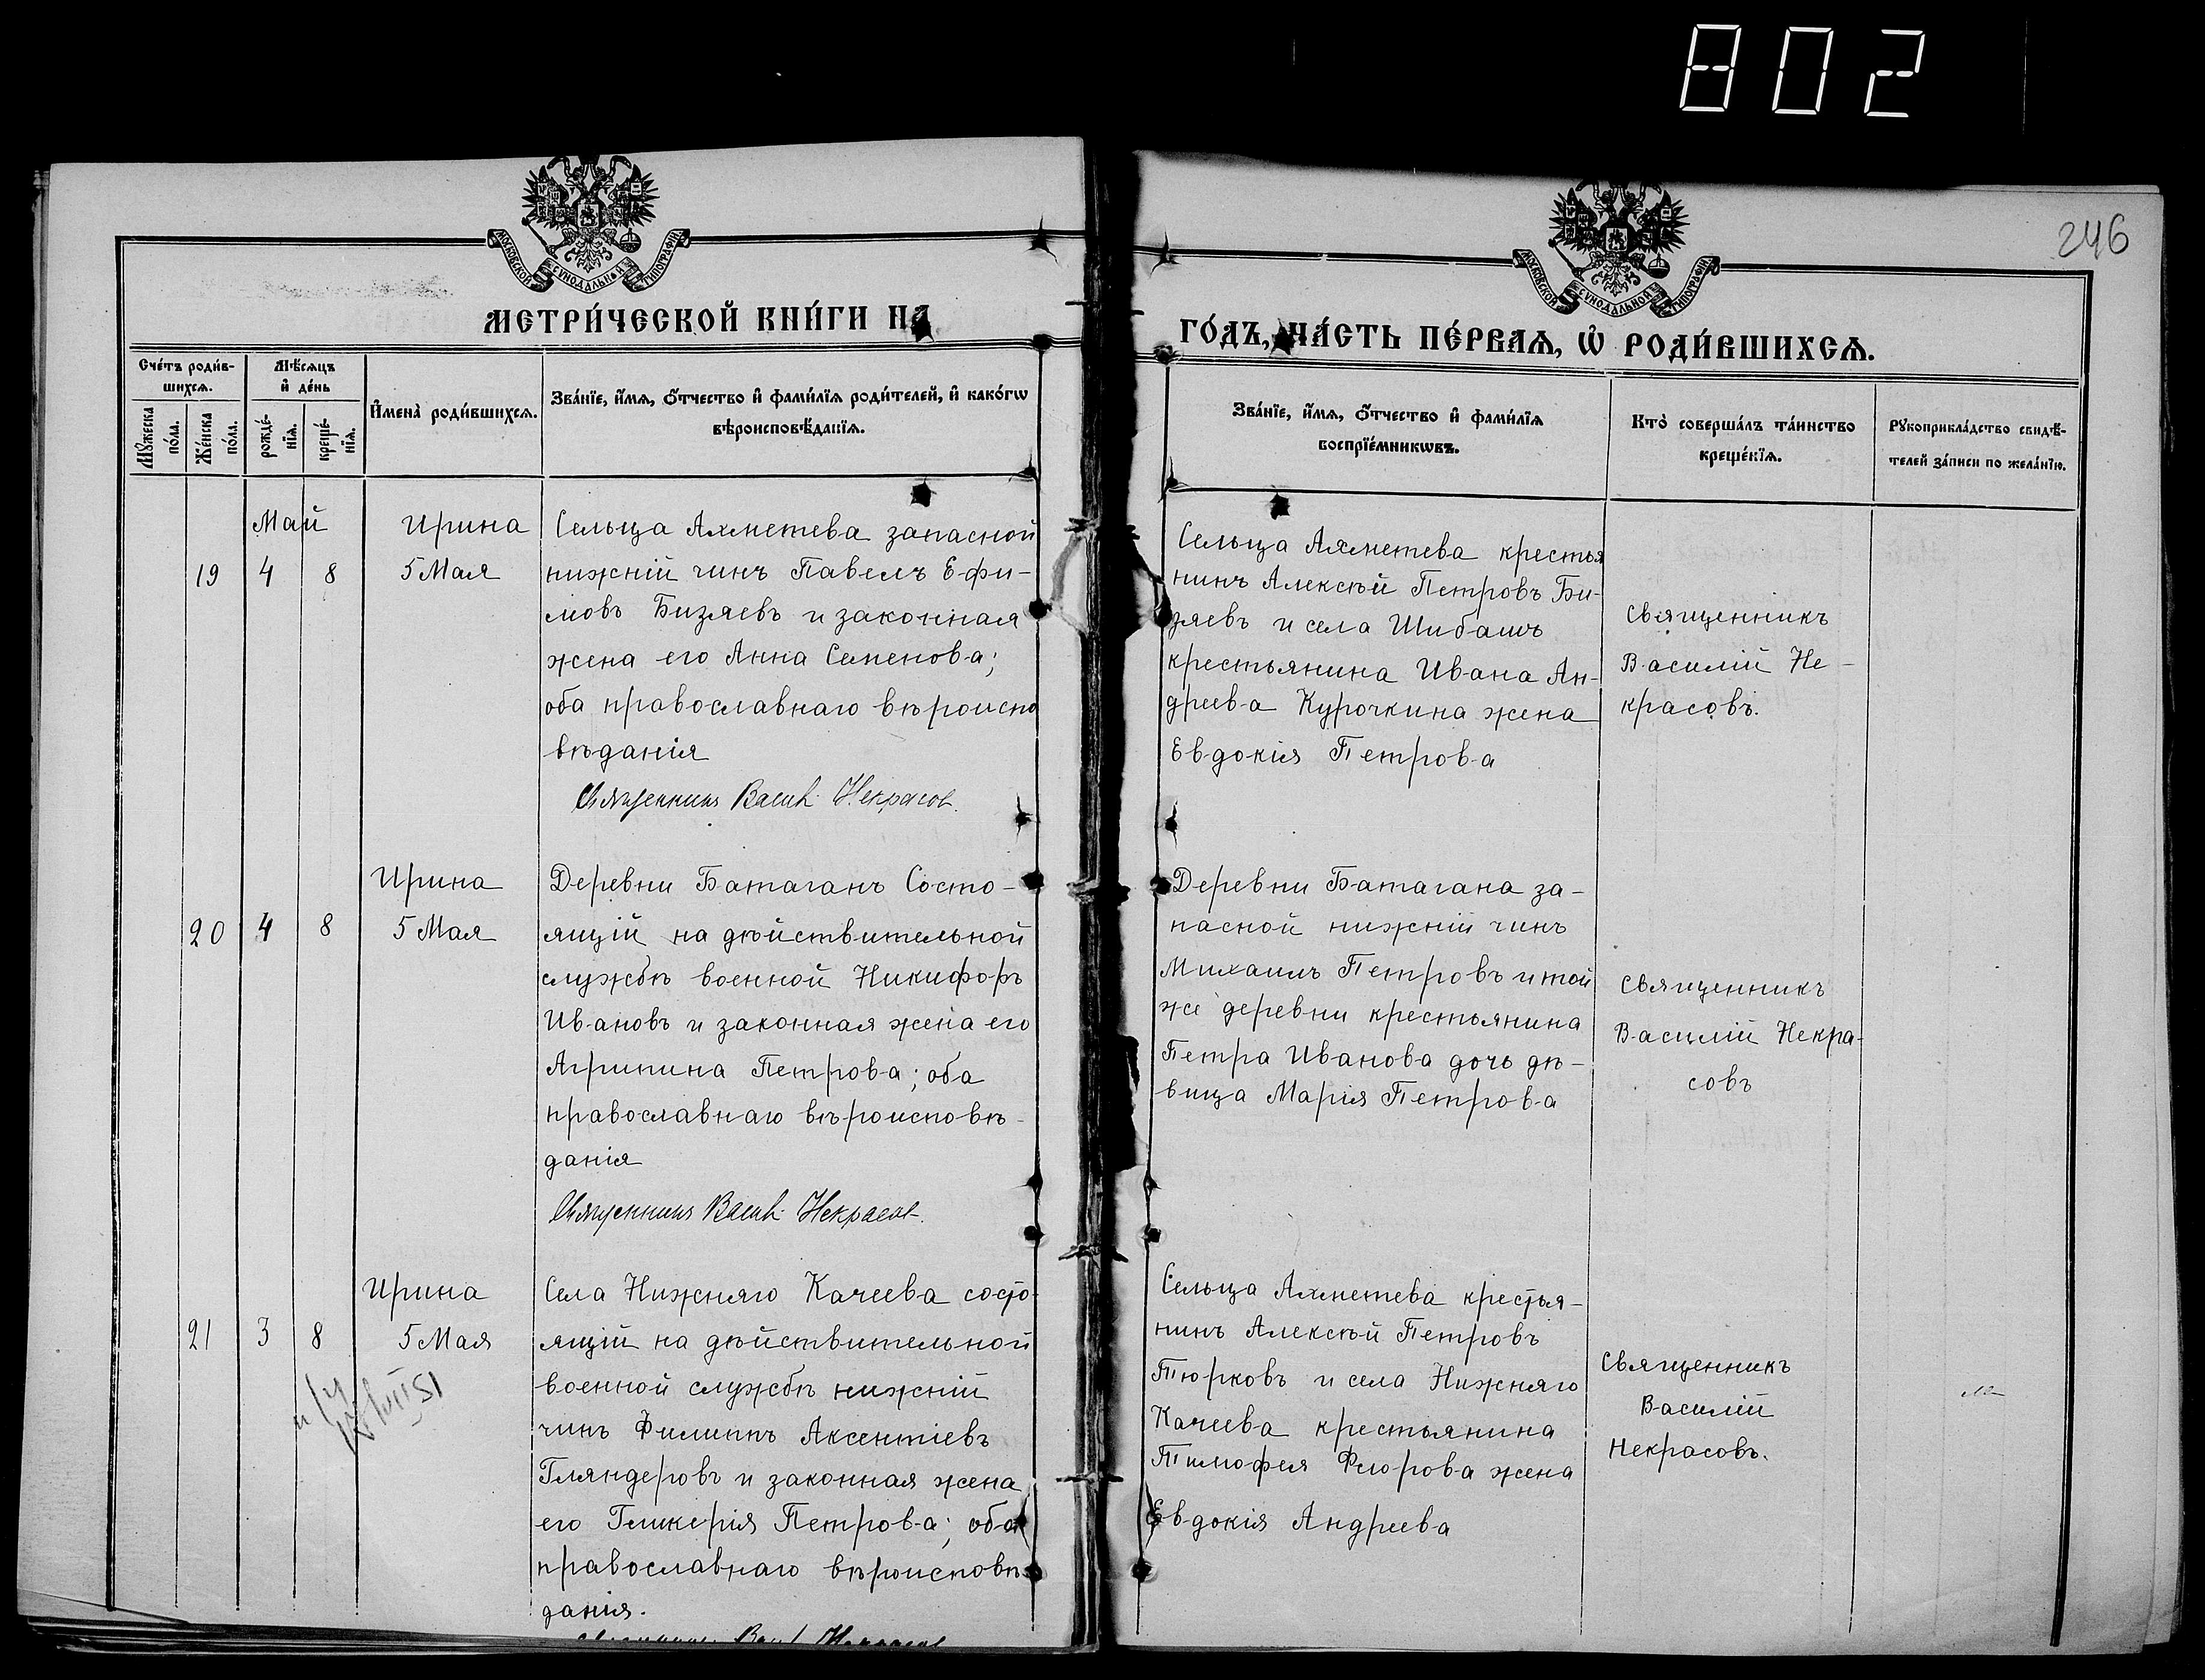 802
246
МОСКОВСКОЙ СѴНОДАЛЬНОЙ ТИПОГРАФІИ
МОСКОВСКОЙ СѴНОДАЛЬНОЙ ТИПОГРАФІИ
МЕТРИ́ЧЕСКОЙ КНИ́ГИ НА
ГО́ДЪ, ЧА́СТЬ ПЕ́РВАѦ, Ѡ РОДИ́ВШИХСѦ.
Сче́тъ роди́в-
шихсѧ.
Мꙋ́жеска по́ла.
Же́нска по́ла.
Мѣ́сѧцъ
и҆ де́нь
рожде́-
нїѧ.
креще́-
нїѧ.
И҆мена̀ роди́вшихсѧ.
Зва́нїе, и҆́мѧ, ѻ҆́тчество и҆ фами́лїѧ роди́телей, и҆ како́гѡ
вѣроисповѣ́данїѧ.
Зва́нїе, и҆́мѧ, ѻ҆́тчество и҆ фами́лїѧ
воспрїе́мникѡвъ.
Кто̀ соверша́лъ та́инство
креще́нїѧ.
Рꙋкоприкла́дство свидѣ́-
телей за́писи по жела́нїю.
Май
19 4 8
Ирина
5 Мая
Сельца Ахметева запасной
нижній чинъ Павелъ Ефи-
мовъ Бизяевъ и законная
жена его Анна Семенова;
оба православнаго вѣроиспо
вѣданія
Священникъ Васил. Некрасов.
Сельца Ахметева крестья
нинъ Алексѣй Петровъ Би-
зяевъ и села Шибашъ
крестьянина Ивана Ан-
дреева Курочкина жена
Евдокія Петрова
Священникъ
Василій Не-
красовъ.
20 4 8
Ирина
5 Мая
Деревни Батаганъ Состо-
ящій на дѣйствительной
службѣ военной Никифоръ
Ивановъ и законная жена его
Агрипина Петрова; оба
православнаго вѣроисповѣ-
данія
Священникъ Васил. Некрасов.
Деревни Батагана за-
пасной нижній чинъ
Михаилъ Петровъ и той
же деревни крестьянина
Петра Иванова дочь дѣ-
вица Марія Петрова
Священникъ
Василій Некра-
совъ
21 3 8
Ирина
5 Мая
Села Нижняго Качеева состо-
ящій на дѣйствительной
военной службѣ нижній
чинъ Филиппъ Аксентіевъ
Гляндеровъ и законная жена
его Гликерія Петрова; оба
православнаго вѣроисповѣ-
данія.
Священникъ Васил. Некрасов
Сельца Ахметева крестья-
нинъ Алексѣй Петровъ
Тюрковъ и села Нижняго
Качеева крестьянина
Тимофея Флорова жена
Евдокія Андреева
Священникъ
Василій
Некрасовъ.